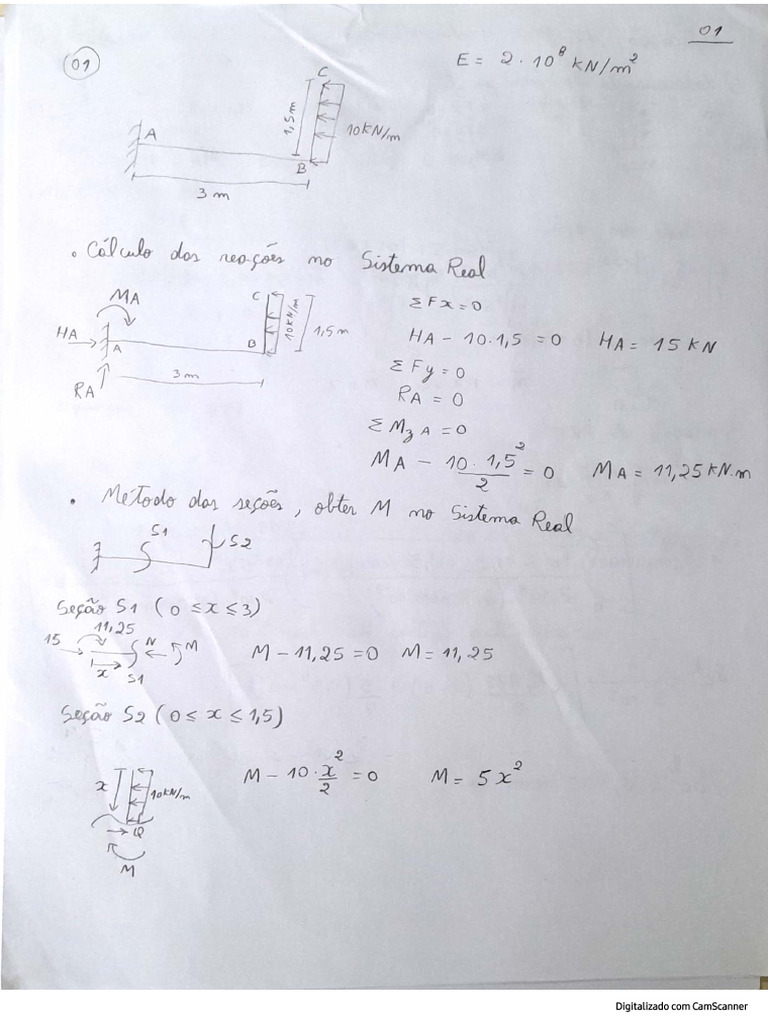 01
01
E = 2 · 10⁸ KN/m²
C
A
1,5 m
10KN/m
B
3 m
• Cálculo das reações no Sistema Real
MA
C
ΣFx = 0
10KN/m
1,5 m
HA
A
B
HA - 10·1,5 = 0 HA = 15 KN
3 m
ΣFy = 0
RA
RA = 0
ΣMz A = 0
MA - 10·1,5²/2 = 0 MA = 11,25 KN·m
• Método das seções, obter M no Sistema Real
S1
S2
Seção S1 (0 ≤ x ≤ 3)
11,25
15
N
M
M - 11,25 = 0 M = 11,25
x
S1
Seção S2 (0 ≤ x ≤ 1,5)
M - 10·x²/2 = 0 M = 5x²
x
10KN/m
Q
M
Digitalizado com CamScanner